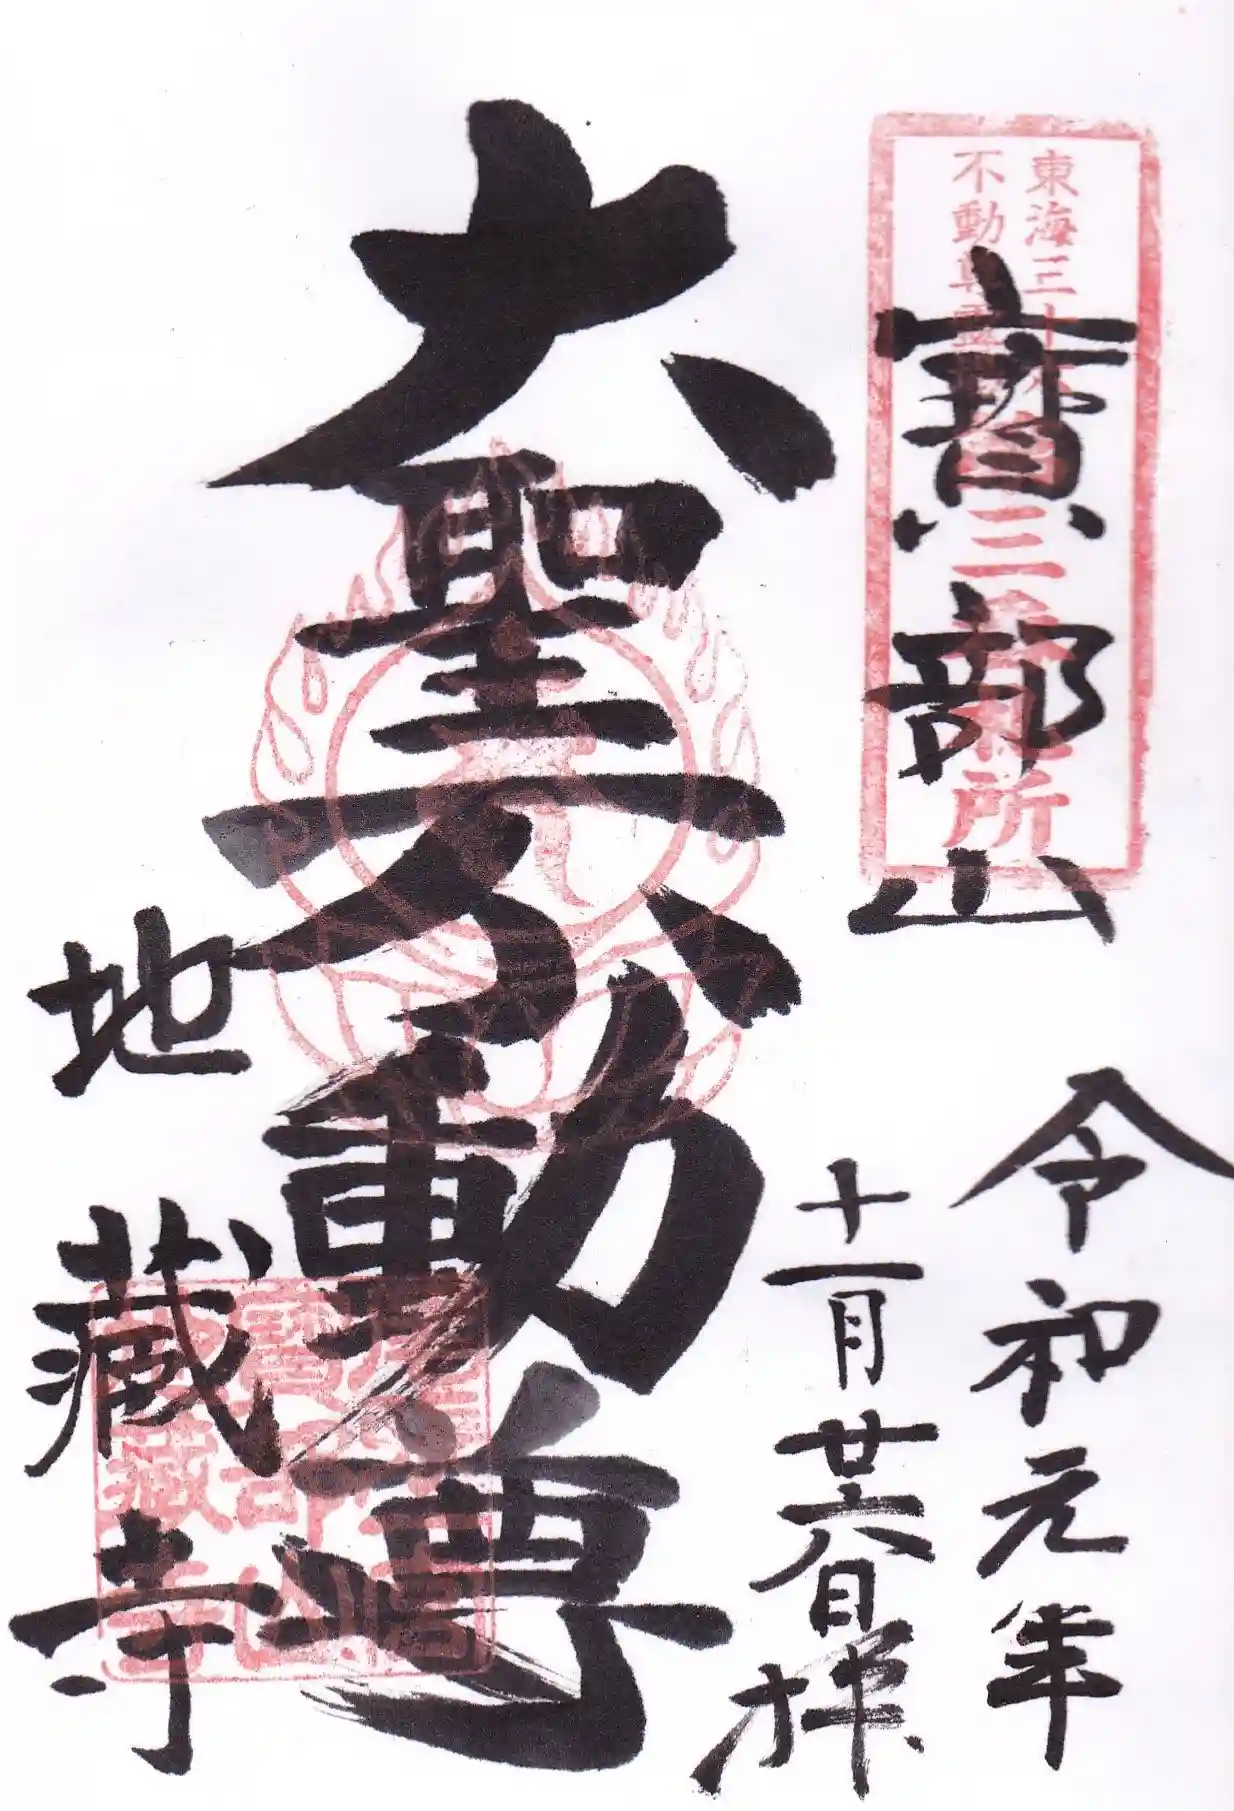 東海三十六
不動尊霊場
第三番札所
寶部山
令和元年
十一月廿六日拝
大聖不動尊
地藏寺